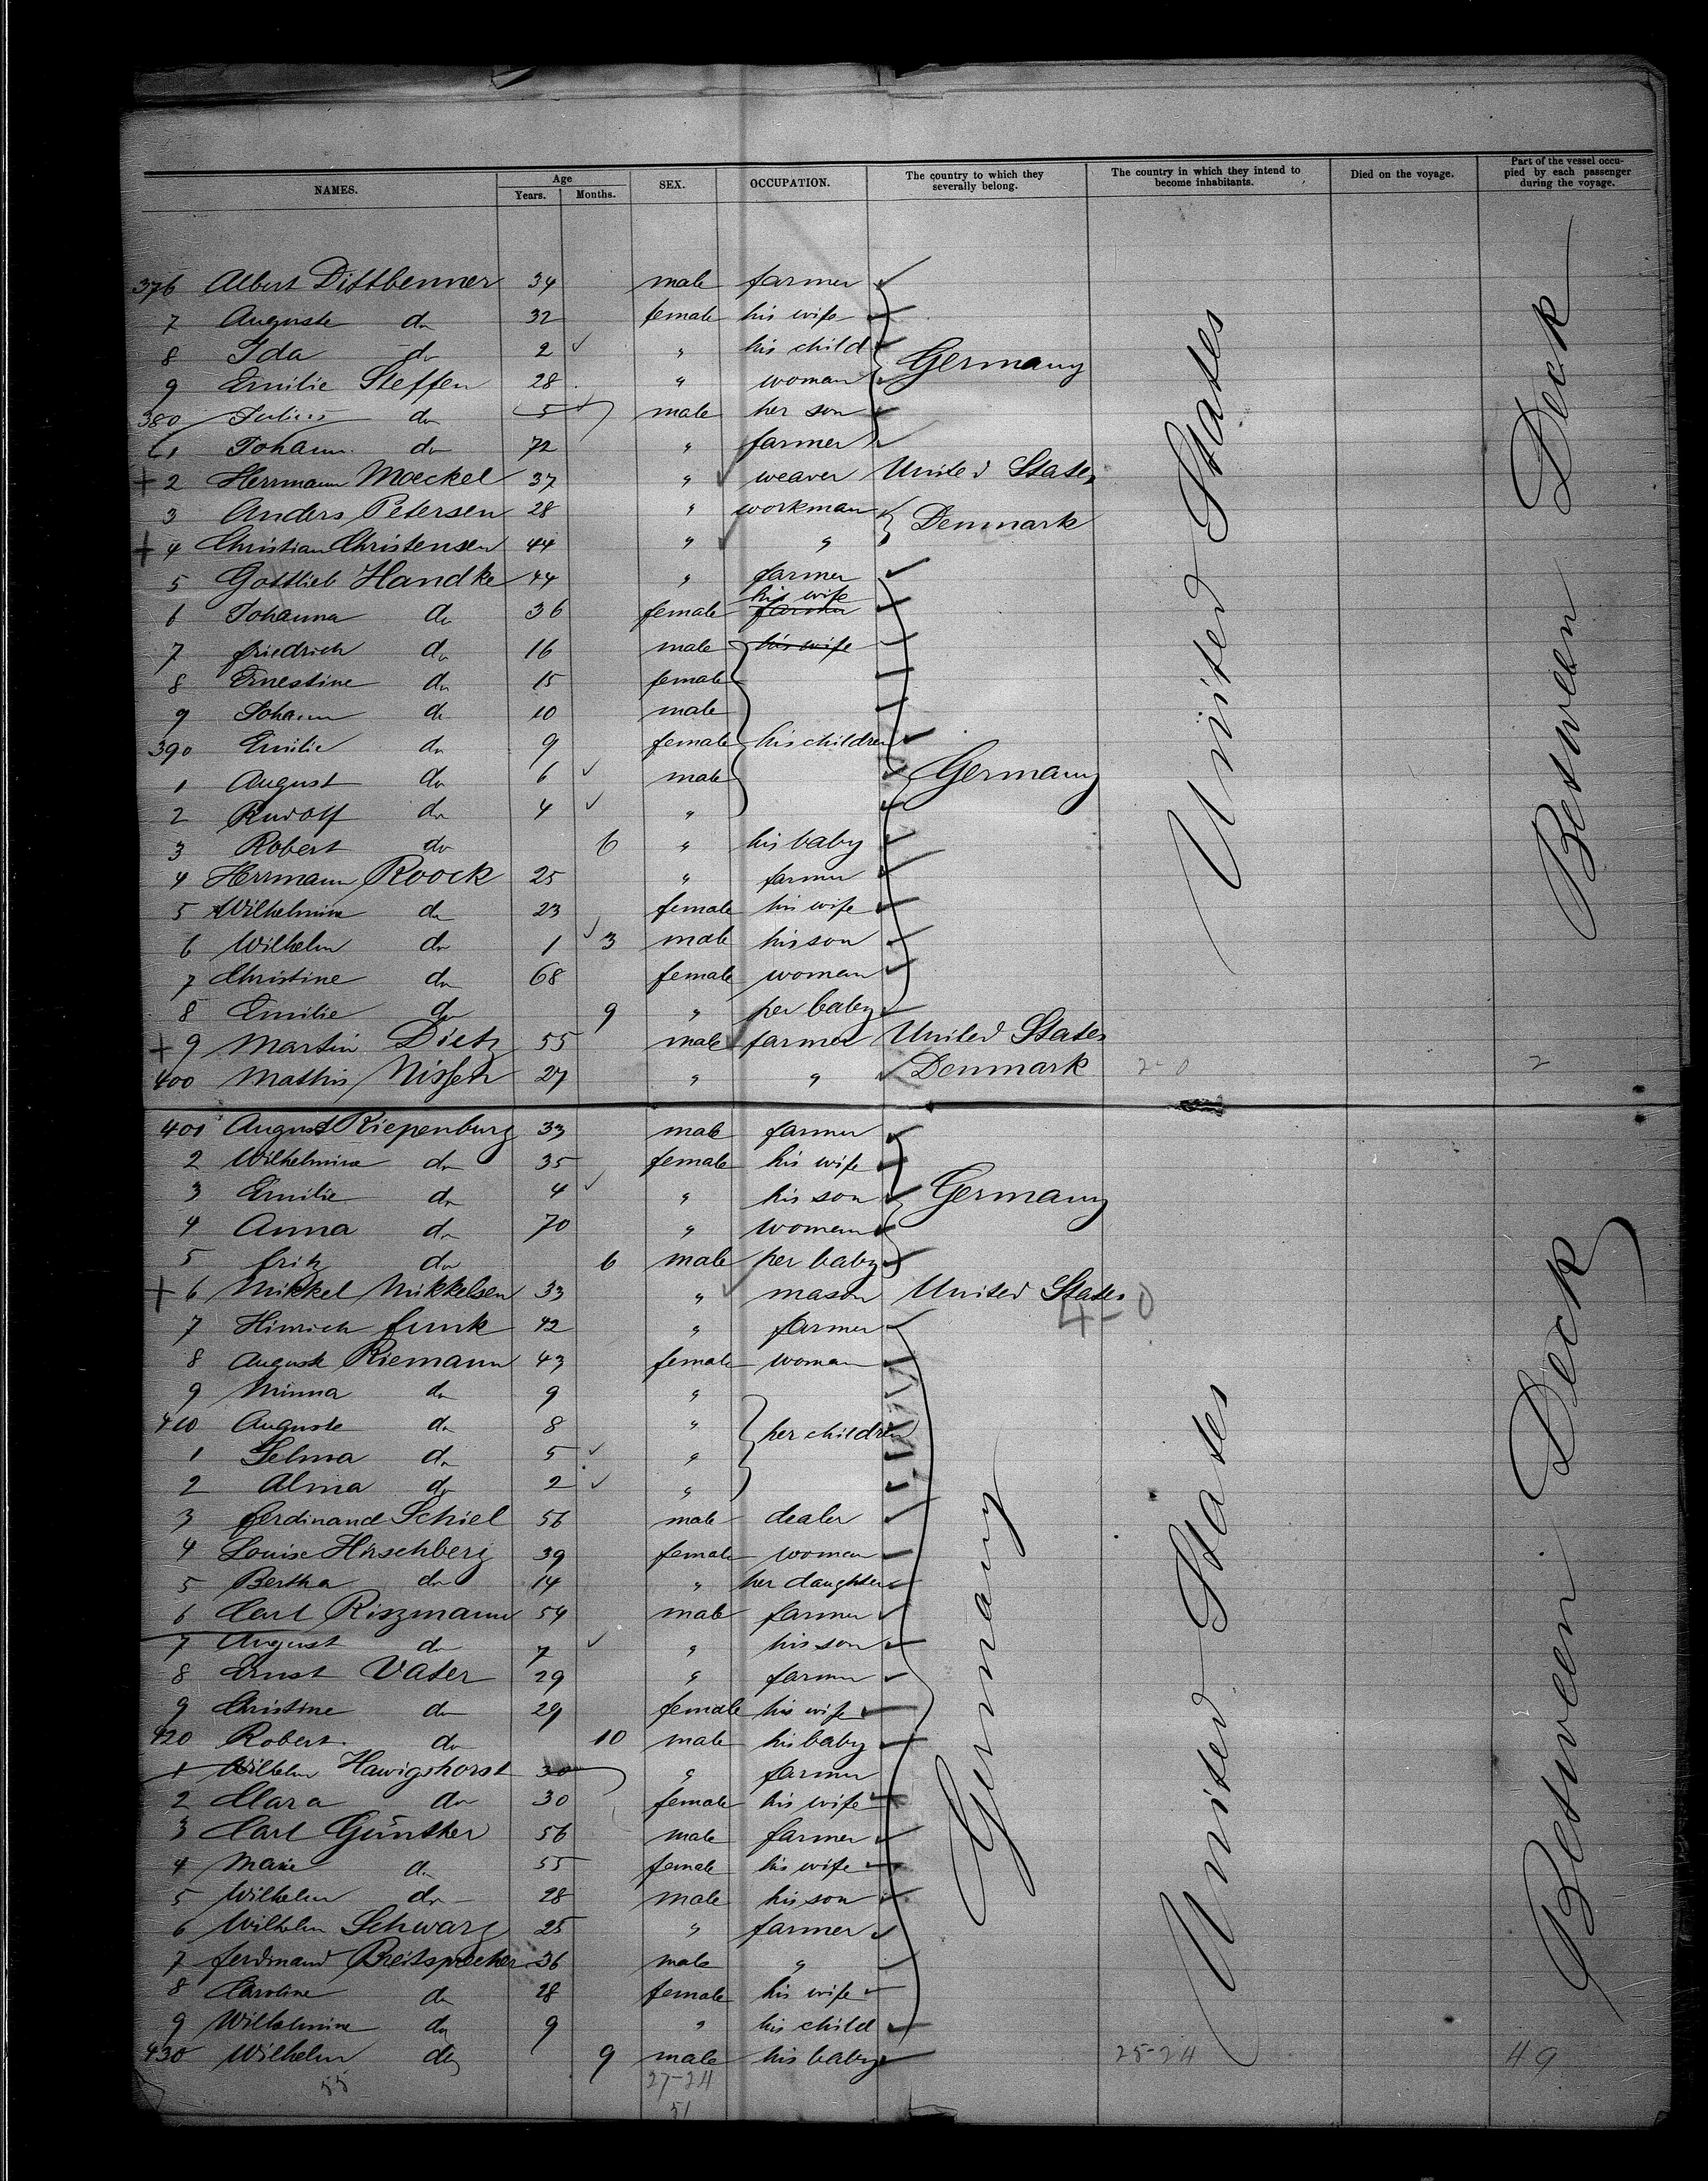 NAMES. Age Years. Months. SEX. OCCUPATION. The country to which they severally belong. The country in which they intend to become inhabitants. Died on the voyage. Part of the vessel occupied by each passenger during the voyage.
376 Albert Dittbenner 34 male farmer
7 Auguste do 32 female his wife
8 Ida do 2 " his child Germany
9 Emilie Steffen 28 " woman
380 Julius do 5 male her son
1 Johann do 72 " farmer
+ 2 Herrmann Moeckel 37 " weaver United States
3 Anders Petersen 28 " workman Denmark
+ 4 Christian Christensen 44 " "
5 Gottlieb Handke 44 " farmer
6 Johanna do 36 female farmer his wife
7 friedrich do 16 male his wife
8 Ernestine do 15 female
9 Johann do 10 male
390 Emilie do 9 female his children
1 August do 6 male Germany
2 Rudolf do 4 "
3 Robert do 6 " his baby
4 Herrmann Roock 25 " farmer
5 Wilhelmine do 23 female his wife
6 Wilhelm do 1 3 male his son
7 Christine do 68 female woman
8 Emilie do 9 " her baby
+ 9 Martin Dietz 55 male farmer United States
400 Mathis Nissen 27 " " Denmark 2-0 2
United States
Between Deck
401 August Riepenburg 33 male farmer
2 Wilhelmine do 35 female his wife
3 Emilie do 4 " his son Germany
4 Anna do 70 " woman
5 fritz do 6 male her baby
+ 6 Mikkel Mikkelsen 33 " mason United States
4-0
7 Hinrich funk 42 " farmer
8 Auguste Riemann 43 female woman
9 Minna do 9 "
410 Auguste do 8 " her children
1 Selma do 5 "
2 Alma do 2 "
3 ferdinand Schiel 56 male dealer
4 Louise Hirschberg 39 female woman
5 Bertha do 14 " her daughter
6 Carl Riszmann 54 male farmer
7 August do 7 " his son
8 Ernst Vater 29 " farmer
9 Christine do 29 female his wife
420 Robert do 10 male his baby
1 Wilhelm Hawigshorst 30 " farmer
2 Clara do 30 female his wife
3 Carl Günther 56 male farmer
4 Marie do 55 female his wife
5 Wilhelm do 28 male his son
6 Wilhelm Schwarz 25 " farmer
7 ferdinand Breitsprecher 36 male "
8 Caroline do 28 female his wife
9 Wilhelmine do 9 " his child
430 Wilhelm do 9 male his baby 25-24 49
Germany
United States
Between Deck
55 27-24
51